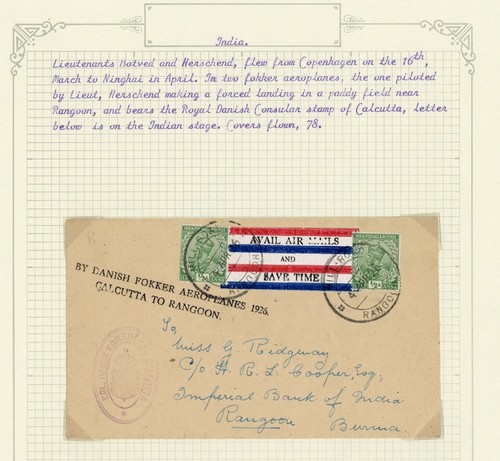 India.
Lieutenants Botved and Herschend, flew from Copenhagen on the 16th,
March to Ninghai in April. In two fokker aeroplanes, the one piloted
by Lieut, Herschend making a forced landing in a paddy field near
Rangoon, and bears the Royal Danish Consular stamp of Calcutta, letter
below is on the Indian stage. Covers flown, 78.
AVAIL AIR MAILS
AND
SAVE TIME
BY DANISH FOKKER AEROPLANES 1926.
CALCUTTA TO RANGOON.
RANGOON
To,
Miss G Ridgway
C/o H. R. L. Cooper, Esq,
Imperial Bank of India
Rangoon
Burma.